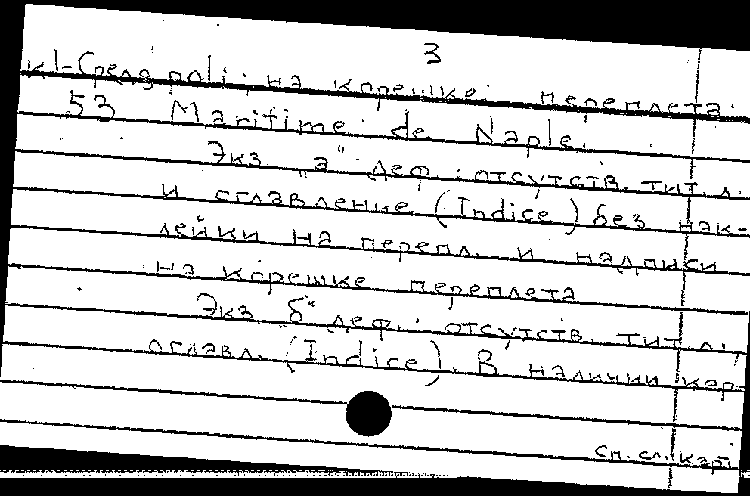 3
к1-Сред poli; на корешке переплета:
53 Maritime de Naple.
Экз. „а“ деф.: отсутств. тит. л.
и оглавление (Indice) без нак-
лейки на перепл. и надписи
на корешке переплета
Экз. б“ деф.: отсутств. тит. л.,
оглавл. (Indice). В наличии кор
См. сл. карт